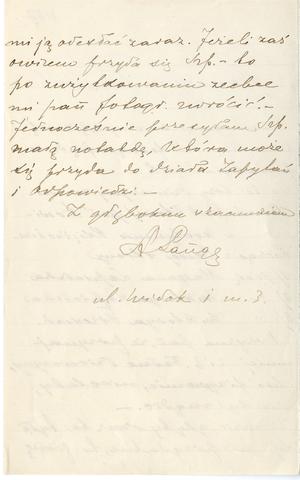 mi ją odesłać zaraz. Jeżeli zaś
owszem przyda się Szp. – to
po zużytkowaniu zechce
mi pan fotogr. zwrócić! –
Jednocześnie przesyłam Szp.
małą notatkę, która może
się przyda do działu Zapytań
i Odpowiedzi. –
Z głębokim szacunkiem
A Lange
ul. Widok 1 m. 3.